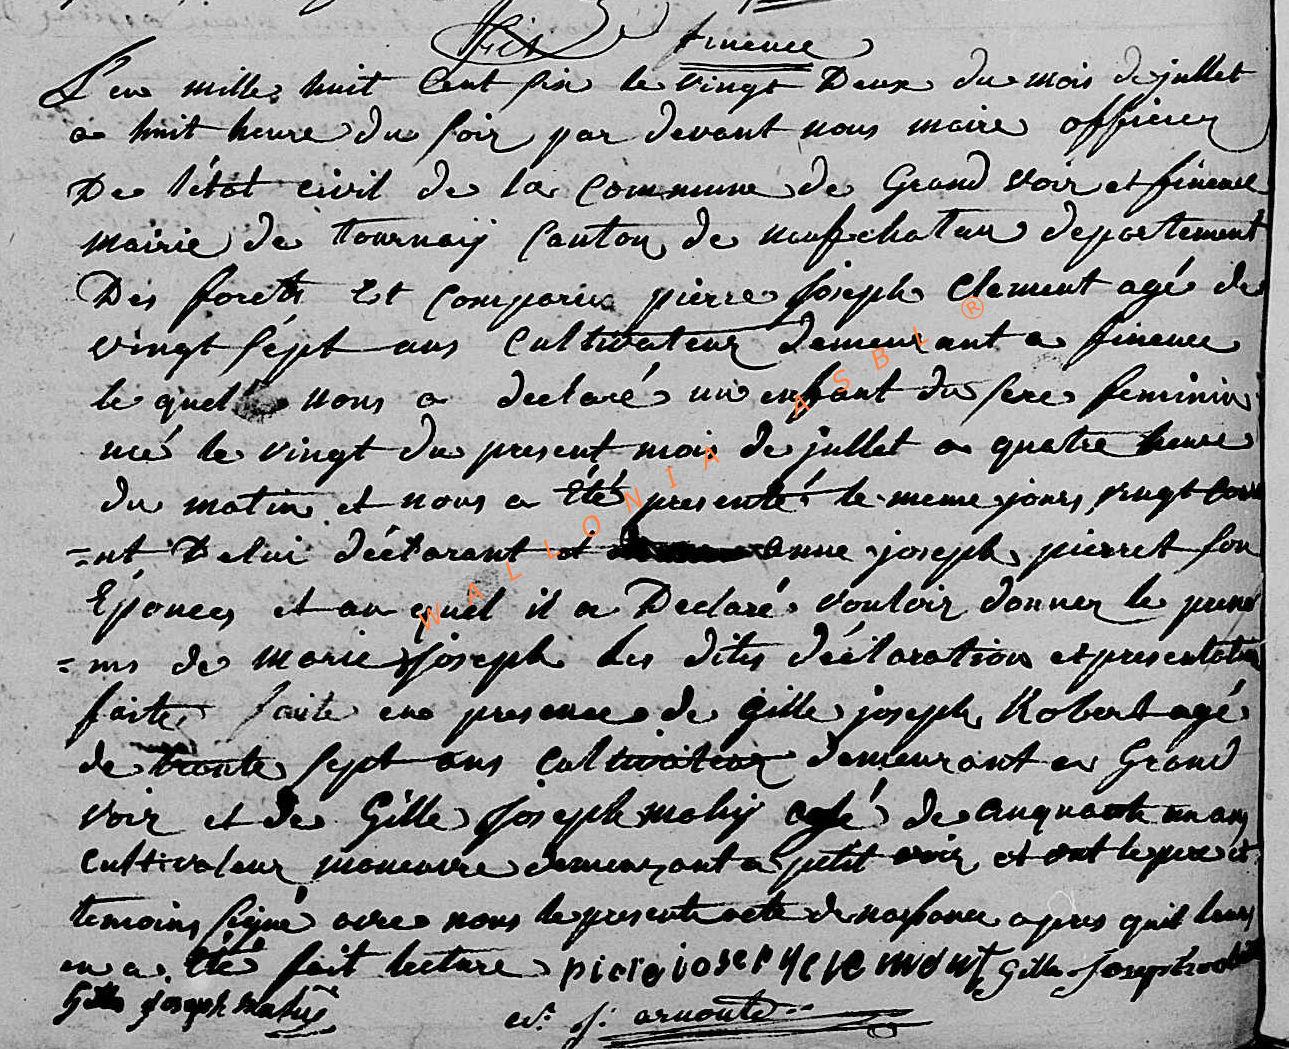 finence
L'en mille huit Cent six le vingt Deux du mois de jullet
a huit heure du soir par devant nous maire officier
De l'état civil de la Commune de Grand voir et finence
mairie de tournaÿ Canton de neufchatau departement
Des forets Est comparue pierre Joseph Clement agé de
vingt sépt ans Cultivateur demeurant a finence
le quel nous a declaré un enfant du sexe feminin
né le vingt du present mois de jullet a quatre heure
du matin et nous a été presenté le meme jours vingt cour
=nt De lui déclarant et anne joseph pierret son
Epouces et au quel il a Declaré vouloir donner le preno
=ms de marie Joseph les dites déclaration et presentation
faite faite en presence de gille joseph Robert agé
de trente sept ans Cultivateur demeurant a Grand
voir et de Gille Joseph mahÿ agé de cinquante un ans
Cultivateur maneuvre demeurant a petit voir et ont le pere et
temoins signé avec nous le present acte de naissance apres quil leurs
en a été fait lecture pierre joseph clement Gille Joseph robert
Gille joseph mahÿ
J: arnould
WALLONIA ASBL ®